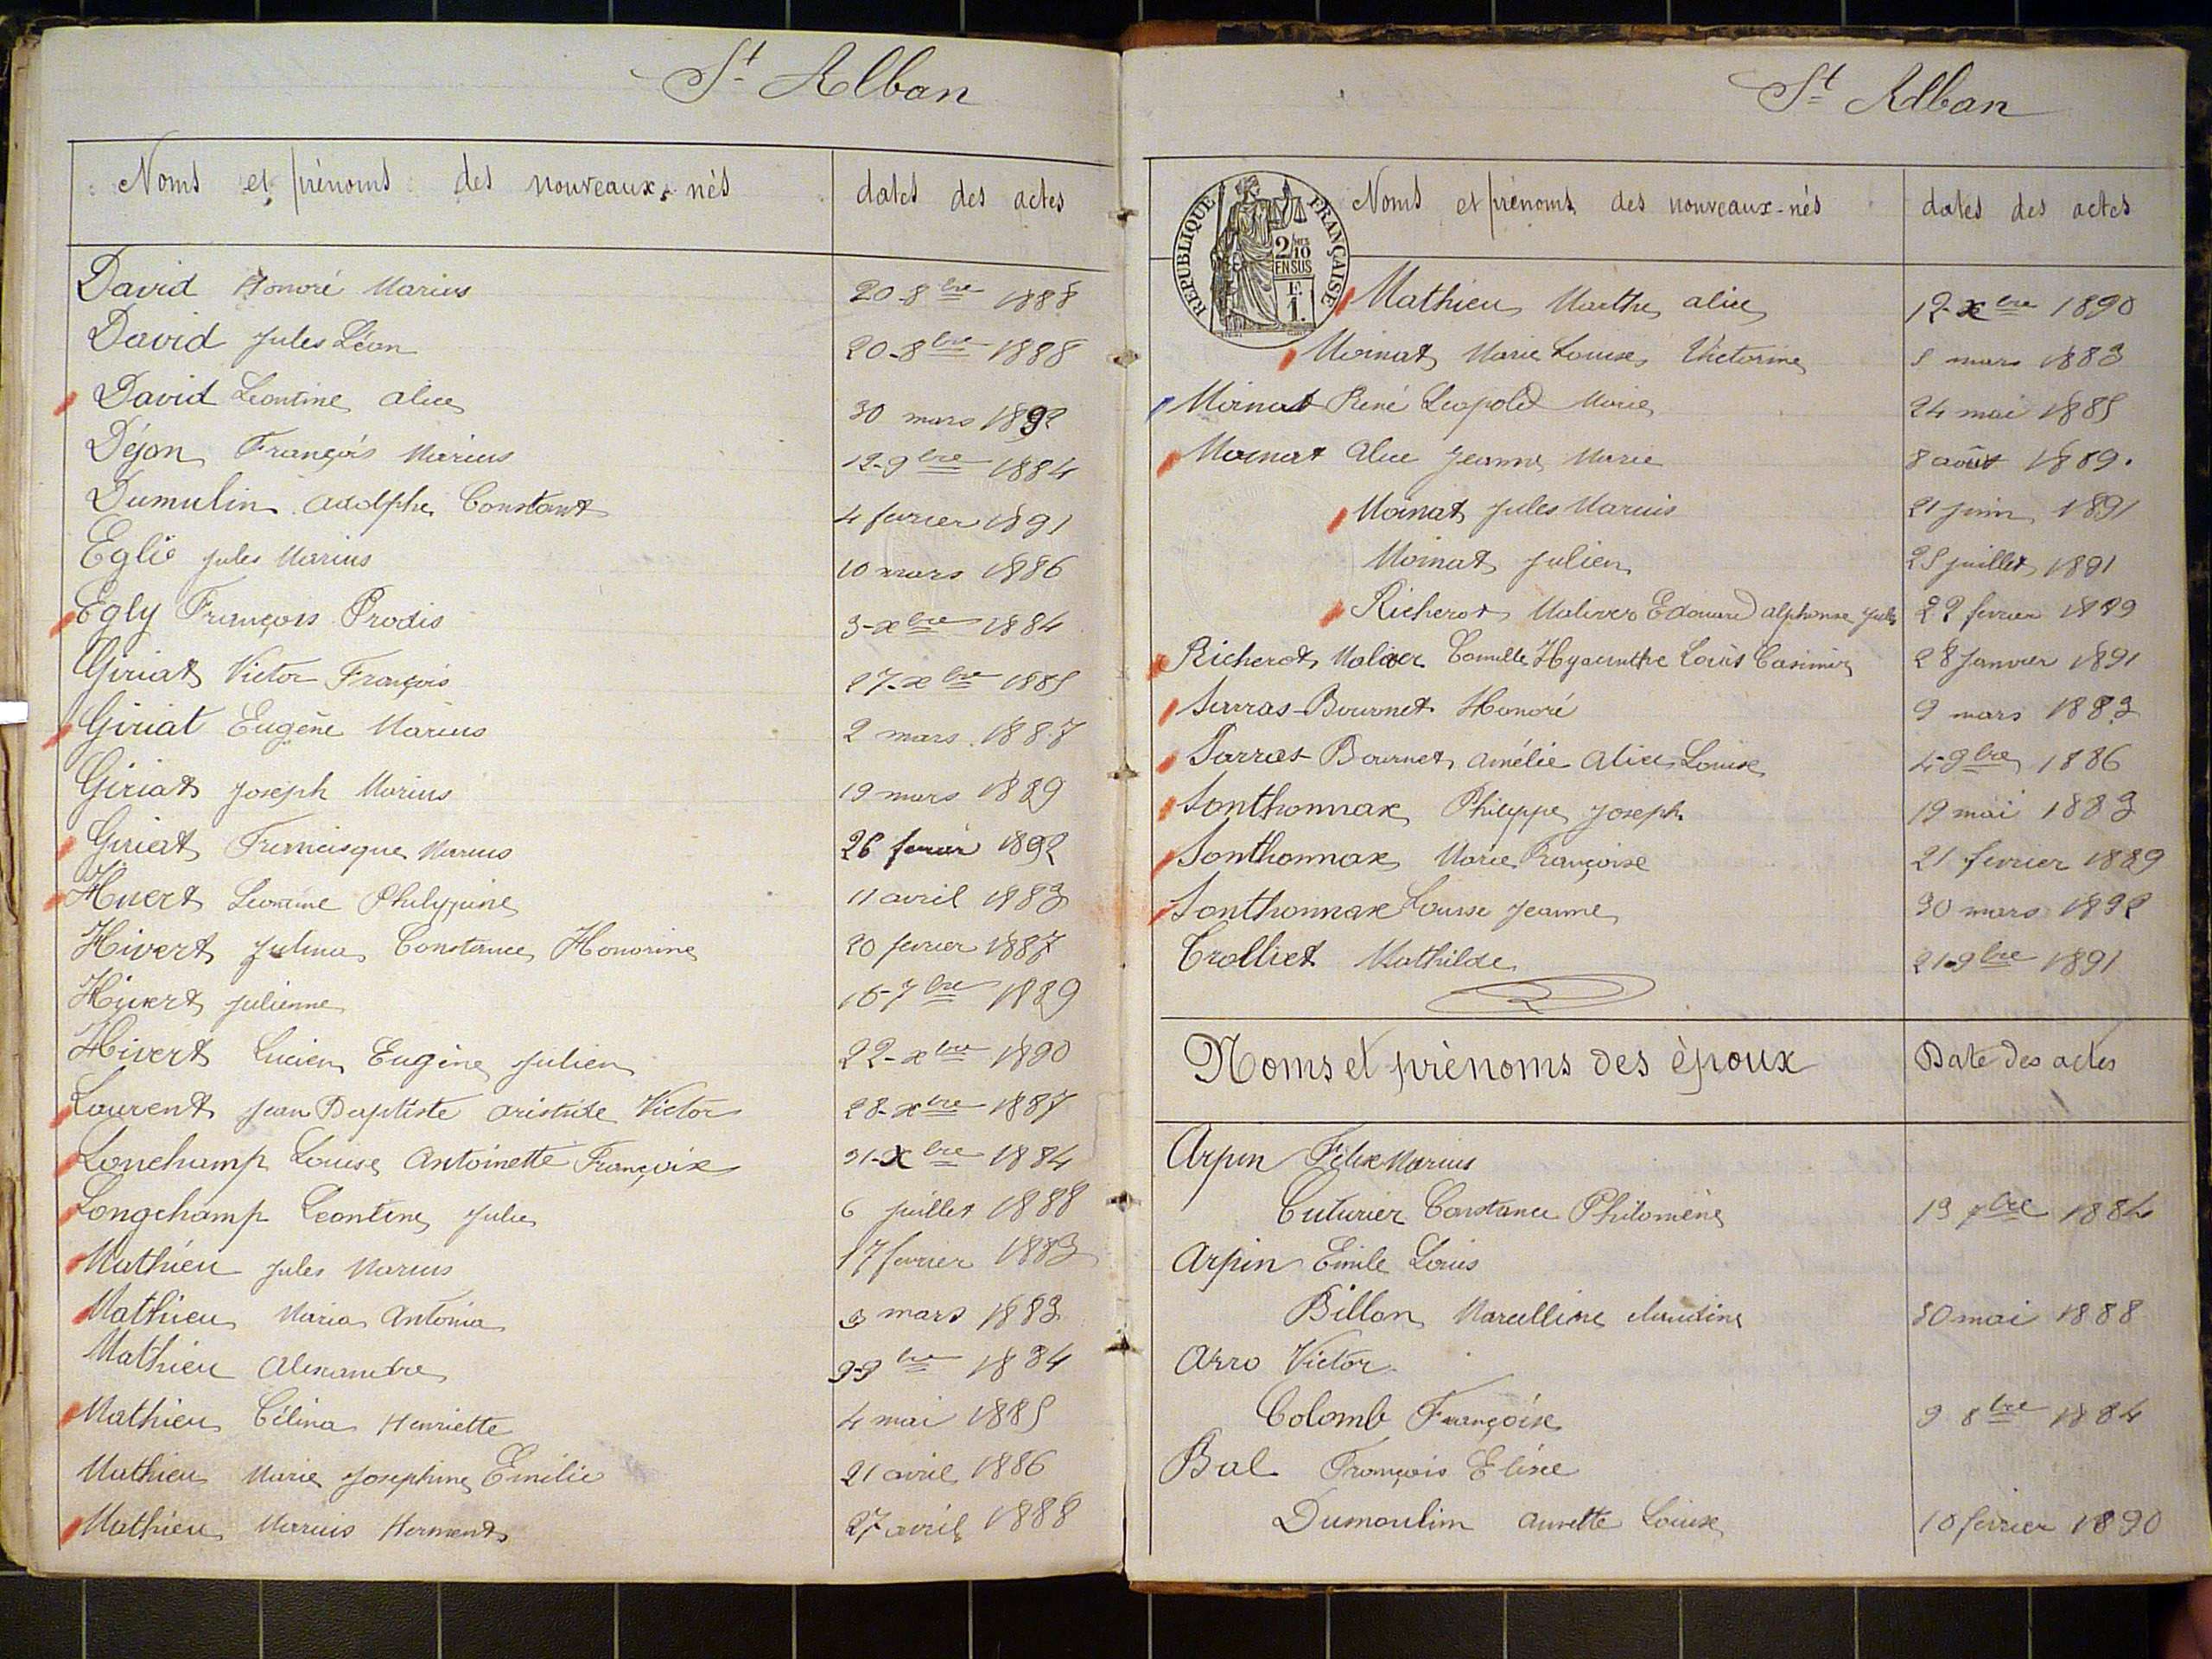 St Alban
Noms et prénoms des nouveaux-nés dates des actes
David Honoré Marius 20-8bre 1888
David Jules Léon 20-8bre 1888
David Léontine Alice 30 mars 1892
Déjon François Marius 12-9bre 1884
Dumulin Adolphe Constant 4 fevrier 1891
Eglie Jules Marius 10 mars 1886
Egly François Prodis 3-xbre 1884
Giriat Victor François 27-xbre 1885
Giriat Eugène Marius 2 mars 1887
Giriat Joseph Marius 19 mars 1889
Giriat Francisque Marius 26 fevrier 1892
Huert Leontine Philippine 11 avril 1883
Hivert Julina Constance Honorine 20 fevrier 1887
Hivert Julienne 16-7bre 1889
Hivert Lucien Eugène Julien 22-xbre 1890
Laurent Jean Baptiste Aristide Victor 28-xbre 1887
Lonchamp Louise Antoinette Françoise 31-xbre 1884
Longchamp Leontine Julie 6 juillet 1888
Mathieu Jules Marius 17 fevrier 1883
Mathieu Maria Antonia 3 mars 1883
Mathieu Alexandre 9-9bre 1884
Mathieu Célina Henriette 4 mai 1885
Mathieu Marie Josephine Emilie 21 avril 1886
Mathieu Marius Herment 27 avril 1888
St Alban
REPUBLIQUE FRANÇAISE
2/10 EN SUS
F. 1.
Noms et prénoms des nouveaux-nés dates des actes
Mathieu Marthe Alice 12-xbre 1890
Moinat Marie Louise Victorine mars 1883
Moinat René Leopold Marie 24 mai 1885
Moinat Alice Jeanne Marie 8 août 1889.
Moinat Jules Marius 21 juin 1891
Moinat Julien 25 juillet 1891
Richerot Maliver Edouard Alphonse Jules 22 fevrier 1889
Richerot Maliver Camille Hyacinthe Louis Casimir 28 Janvier 1891
Sarras-Bournet Honoré 9 mars 1883
Sarras-Bournet Amélie Alice Louise 4-9bre 1886
Sonthonnax Philippe Joseph 19 mai 1883
Sonthonnax Marie Françoise 21 fevrier 1889
Sonthonnax Louise Jeanne 30 mars 1892
Crolliet Mathilde 21-9bre 1891
Noms et prénoms des époux Date des actes
Arpin Felix Marius
Cuturier Constance Philomène 13 7bre 1884
Arpin Emile Louis
Billon Marcelline Claudine 30 mai 1888
Arro Victor
Colomb Françoise 9 8bre 1884
Bal François Elisée
Dumoulin Annette Louise 10 fevrier 1890